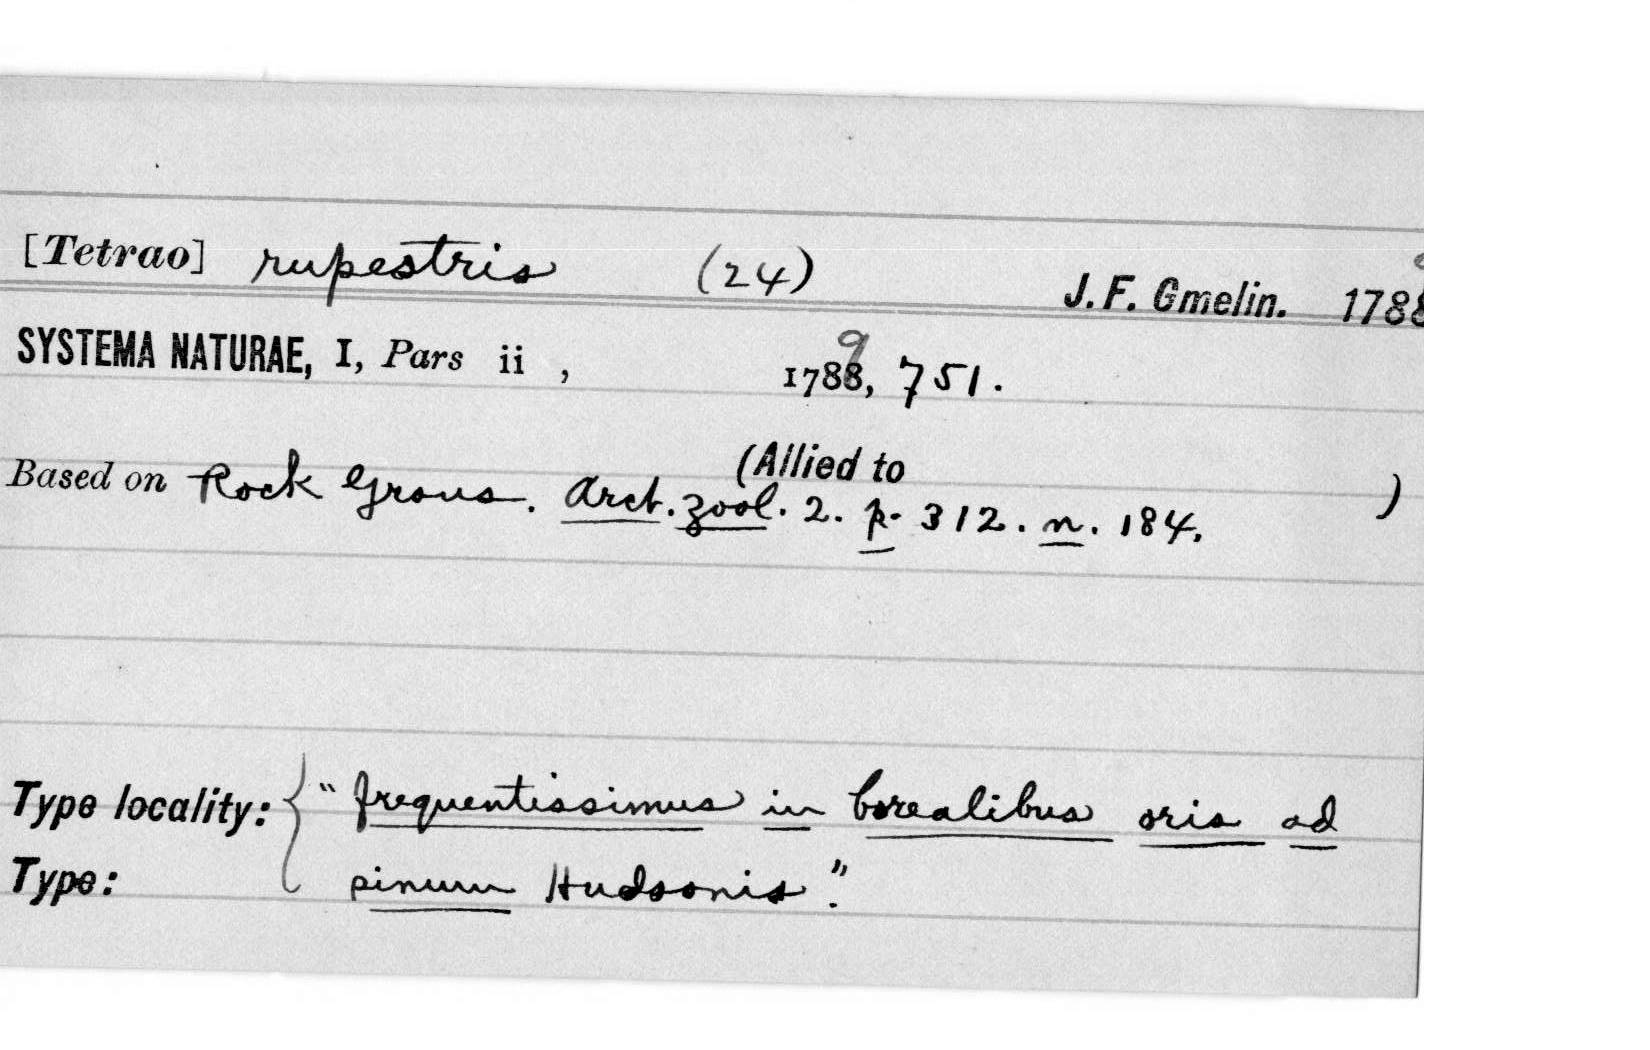 [Tetrao] rupestris (24) J. F. Gmelin. 1788
SYSTEMA NATURAE, I, Pars ii , 1788, 9 751.
(Allied to )
Based on Rock Grous. Arct. zool. 2. p. 312. n. 184.
Type locality: { " frequentissimus in borealibus oris ad
Type: sinum Hudsonis."